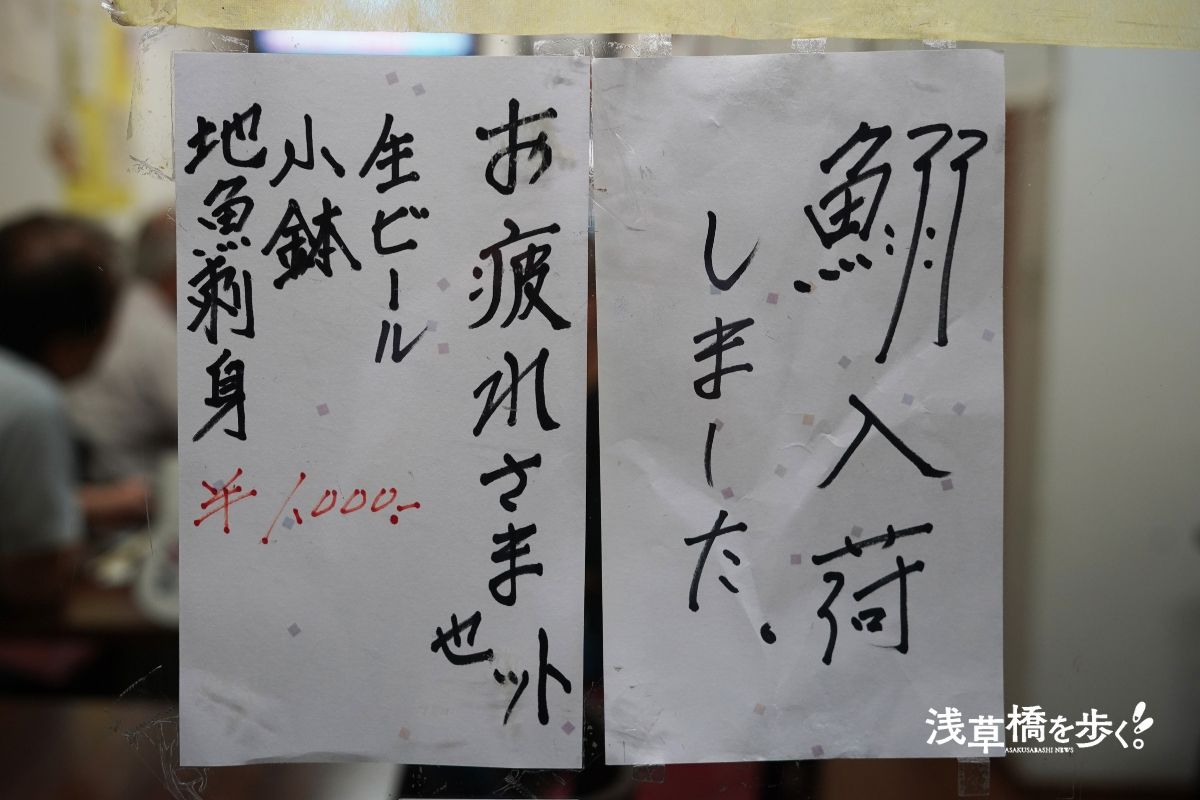 鰯入荷
しました.
お疲れさま
セット
生ビール
小鉢
地魚刺身
¥1,000.-
浅草橋を歩く。!
ASAKUSABASHI NEWS